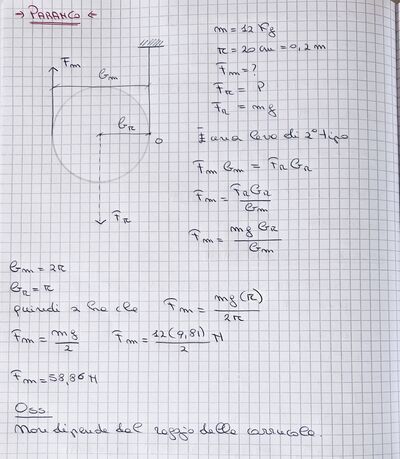 → PARANCO ←
m = 12 Kg
r = 20 cm = 0,2 m
Fm = ?
FR = P
FR = mg
È una leva di 2° tipo
Fm bm = FR bR
Fm = FR bR / bm
Fm = mg bR / bm
Fm
bm
bR
O
FR
bm = 2r
bR = r
quindi si ha che Fm = mg(r) / 2r
Fm = mg / 2 Fm = 12(9,81) / 2 N
Fm = 58,86 N
Oss
Non dipende dal raggio della carrucola.